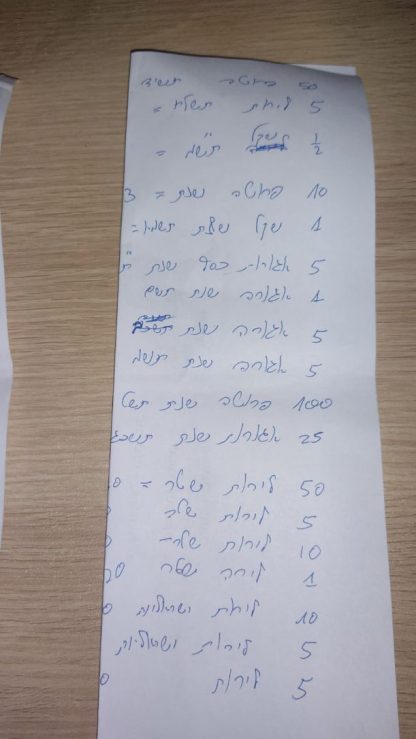 50 פרוטה תשי"ד
5 לירות תשל"ח =
½ שקל =
10 פרוטה שנת =
1 שקל שנת תשמא =
5 אגורות כסף שנת
1 אגורה שנת תשם
5 אגורה שנת
5 אגורה שנת תשמ
100 פרוטה שנת תשט
25 אגורות שנת
50 לירות שטר =
5 לירות שטר
10 לירות שטר
1 לירה שטר
10 לירות ישראליות
5 לירות ישראליות
5 לירות